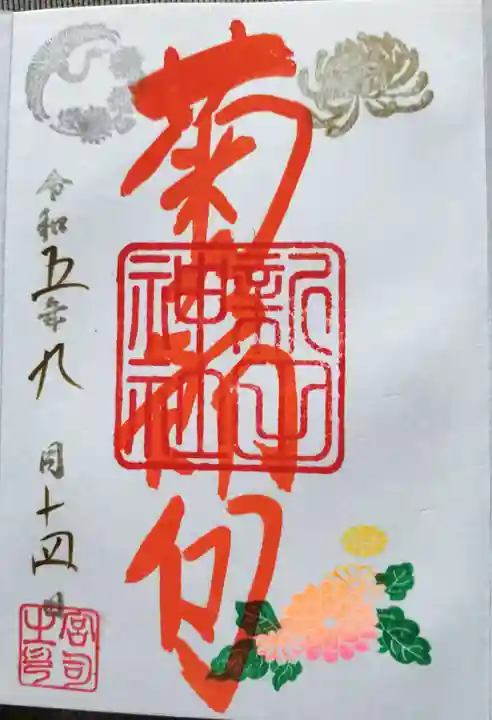 菊節句
新守神社
令和五年九月十四日
宮司之印